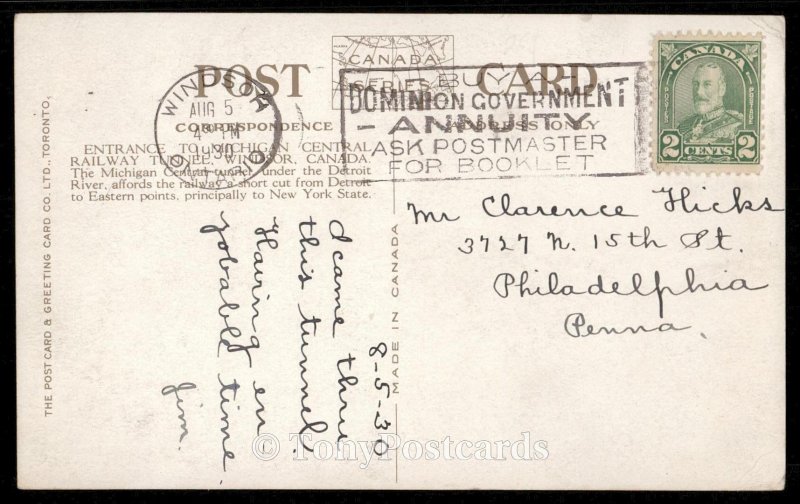 POST CARD
CANADA
SERIES
CORRESPONDENCE
ADDRESS ONLY
ENTRANCE TO MICHIGAN CENTRAL
RAILWAY TUNNEL, WINDSOR, CANADA.
The Michigan Central tunnel under the Detroit
River, affords the railway a short cut from Detroit
to Eastern points, principally to New York State.
WINDSOR
AUG 5
4 PM
1930
BUY A
DOMINION GOVERNMENT
ANNUITY
ASK POSTMASTER
FOR BOOKLET
CANADA
POSTES
POSTAGE
2 CENTS 2
THE POST CARD & GREETING CARD CO. LTD., TORONTO,
MADE IN CANADA
8-5-30
I came thru
this tunnel.
Having en
joyable time
Jim.
Mr Clarence Hicks
3727 N. 15th St.
Philadelphia
Penna.
© TonyPostcards